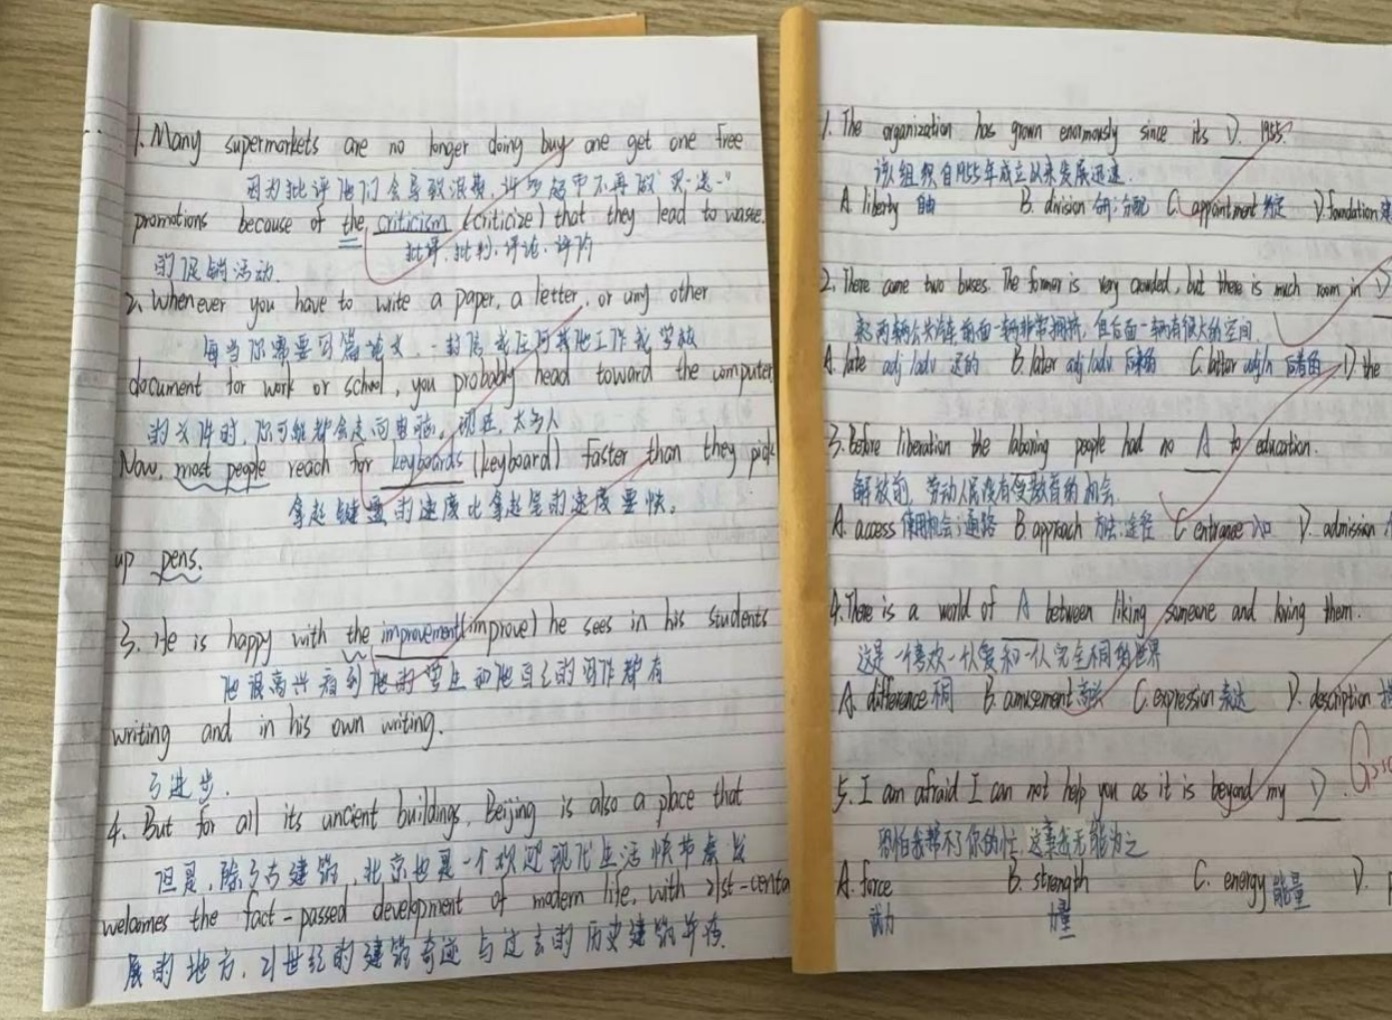 1. Many supermarkets are no longer doing buy one get one free
因为批评他们会导致浪费，许多超市不再做"买一送一"
promotions because of the criticism (criticize) that they lead to waste.
批评．批判．评论．评价
的促销活动．
2. Whenever you have to write a paper, a letter, or any other
每当你需要写篇论文．一封信或任何其他工作或学校
document for work or school, you probably head toward the computer
的文件时，你可能都会走向电脑．现在，大多人
Now, most people reach for keyboards (keyboard) faster than they pick
拿起键盘的速度比拿起笔的速度要快。
up pens.
3. He is happy with the improvement(improve) he sees in his students
他很高兴看到他的学生和他自己的写作都有
writing and in his own writing.
了进步．
4. But for all its ancient buildings, Beijing is also a place that
但是，除了古建筑，北京也是一个欢迎现代生活快节奏发
welcomes the fact-passed development of modern life, with 21st-centu
展的地方，21世纪的建筑奇迹与过去的历史建筑并存．
1. The organization has grown enormously since its D. 1955.
该组织自1955年成立以来发展迅速．
A. liberty 自由 B. division 分配 C. appointment 约定 D. foundation 建
2. There came two buses. The former is very crowded, but there is much room in D
来两辆公共汽车前面一辆非常拥挤，但后面一辆有很大的空间．
A. late adj/adv 迟的 B. later adj/adv 后来的 C. latter adj/n 后者的 D. the
3. Before liberation the laboring people had no A to education.
解放前，劳动人民没有受教育的机会．
A. access 使用机会；通路 B. approach 方法．途径 C. entrance 入口 D. admission
4. There is a world of A between liking someone and loving them.
这是一个喜欢一个人爱和一个人完全不同的世界
A. difference 不同 B. amusement 高兴 C. expression 表达 D. description 描
5. I am afraid I can not help you as it is beyond my D.
恐怕我帮不了你的忙．这事我无能为之
A. force B. strength C. energy 能量 D.
武力 力量